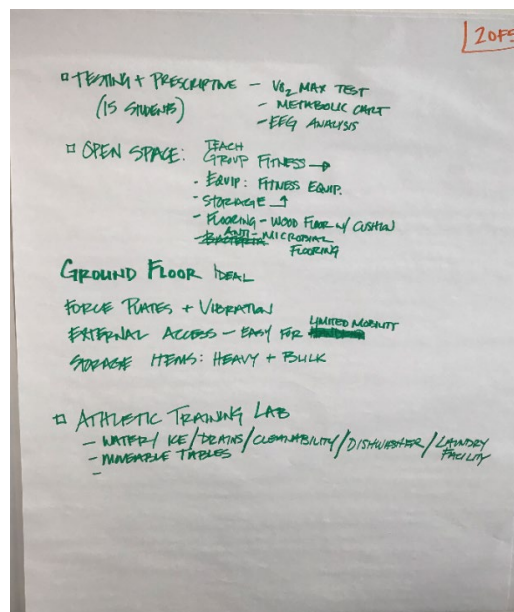 2 OF 5
□ TESTING + PRESCRIPTIVE - VO₂ MAX TEST
(15 STUDENTS) - METABOLIC CART
- EEG ANALYSIS
□ OPEN SPACE: TEACH
GROUP FITNESS →
- EQUIP: FITNESS EQUIP.
- STORAGE ↑
- FLOORING - WOOD FLOOR W/ CUSHION
- ANTI-MICROBIAL
FLOORING
GROUND FLOOR IDEAL
FORCE PLATES + VIBRATION
EXTERNAL ACCESS - EASY FOR LIMITED MOBILITY
STORAGE ITEMS: HEAVY + BULK
□ ATHLETIC TRAINING LAB
- WATER / ICE / DRAINS / CLEANABILITY / DISHWASHER / LAUNDRY
FACILITY
- MOVEABLE TABLES
-